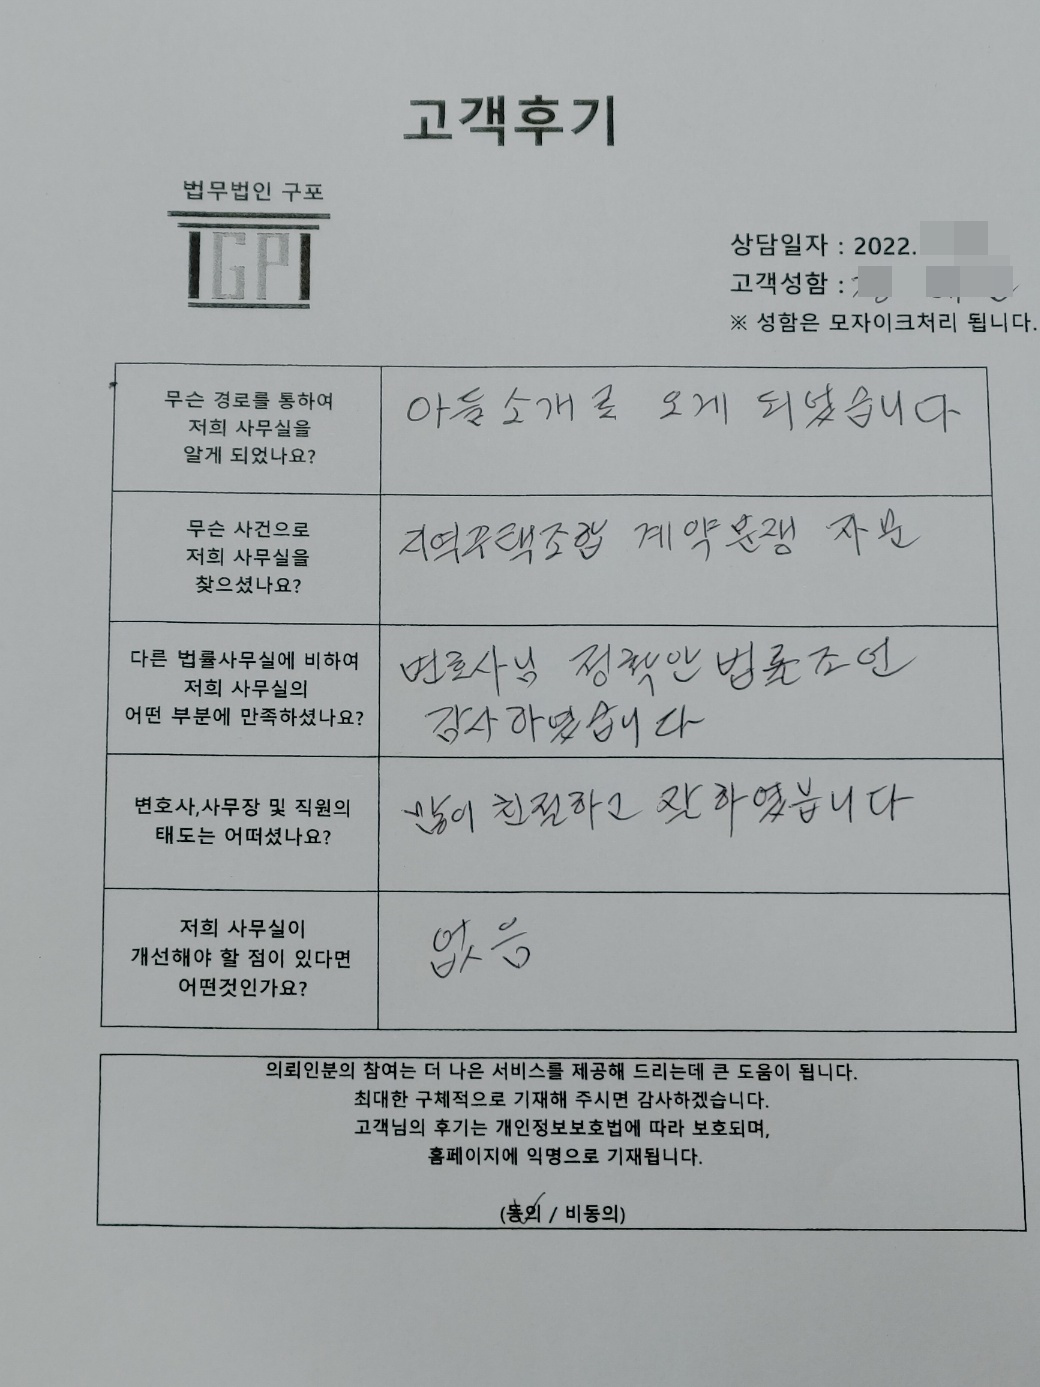 고객후기
법무법인 구포
GP
상담일자 : 2022.
고객성함 :
※ 성함은 모자이크처리 됩니다.
무슨 경로를 통하여
저희 사무실을
알게 되었나요?
아들소개로 오게 되었습니다
무슨 사건으로
저희 사무실을
찾으셨나요?
지역주택조합 계약분쟁 자문
다른 법률사무실에 비하여
저희 사무실의
어떤 부분에 만족하셨나요?
변호사님 정확한 법률조언
감사하였습니다
변호사,사무장 및 직원의
태도는 어떠셨나요?
많이 친절하고 잘하였습니다
저희 사무실이
개선해야 할 점이 있다면
어떤것인가요?
없음
의뢰인분의 참여는 더 나은 서비스를 제공해 드리는데 큰 도움이 됩니다.
최대한 구체적으로 기재해 주시면 감사하겠습니다.
고객님의 후기는 개인정보보호법에 따라 보호되며,
홈페이지에 익명으로 기재됩니다.
(동의 / 비동의)